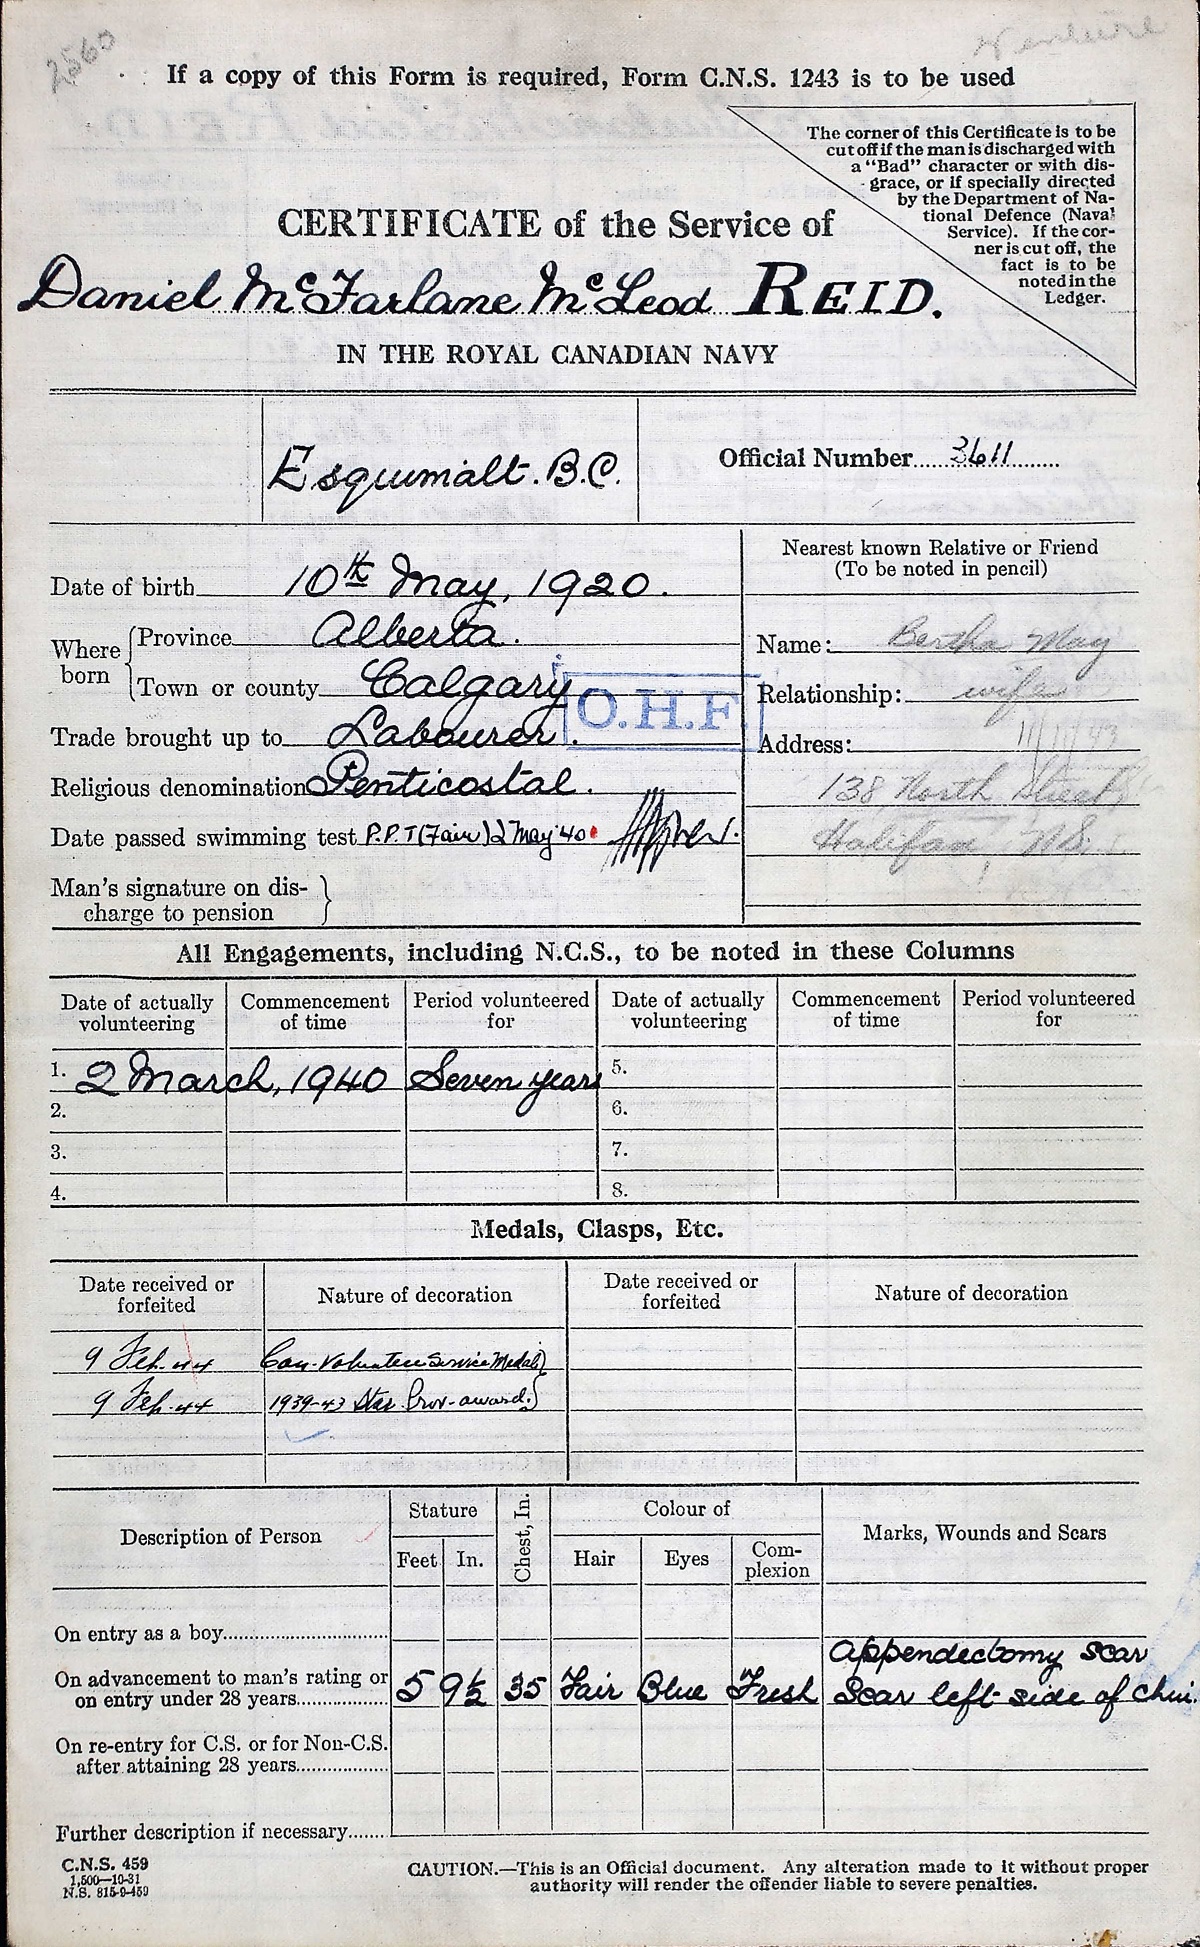 2560
Venture
If a copy of this Form is required, Form C.N.S. 1243 is to be used
The corner of this Certificate is to be
cut off if the man is discharged with
a "Bad" character or with dis-
grace, or if specially directed
by the Department of Na-
tional Defence (Naval
Service). If the cor-
ner is cut off, the
fact is to be
noted in the
Ledger.
CERTIFICATE of the Service of
Daniel McFarlane McLeod REID.
IN THE ROYAL CANADIAN NAVY
Esquimalt. B.C.
Official Number 3611
Nearest known Relative or Friend
(To be noted in pencil)
Date of birth 10th May, 1920.
Where born
Province Alberta.
Town or county Calgary
Trade brought up to Labourer.
O.H.F.
Religious denomination Penticostal.
Date passed swimming test P.P.T (Fair) 2 May '40
Man's signature on dis-
charge to pension
Name: Bertha May
Relationship: wife
Address: 11/11/43
138, North Street,
Halifax, N.S.
All Engagements, including N.C.S., to be noted in these Columns
Date of actually volunteering
Commencement of time
Period volunteered for
Date of actually volunteering
Commencement of time
Period volunteered for
1. 2 March, 1940 Seven years 5.
2. 6.
3. 7.
4. 8.
Medals, Clasps, Etc.
Date received or forfeited
Nature of decoration
Date received or forfeited
Nature of decoration
9 Feb. 44 Can. Volunteer Service Medal)
9 Feb. 44 1939-43 Star Prov. award.)
Description of Person
Stature
Feet In.
Chest, In.
Colour of
Hair Eyes Com-
plexion
Marks, Wounds and Scars
On entry as a boy
On advancement to man's rating or
on entry under 28 years 5 9½ 35 Fair Blue Fresh
Appendectomy scar
Scar left side of chin.
On re-entry for C.S. or for Non-C.S.
after attaining 28 years
Further description if necessary
C.N.S. 459
1,500—10-31
N.S. 815-9-459
CAUTION.—This is an Official document. Any alteration made to it without proper
authority will render the offender liable to severe penalties.